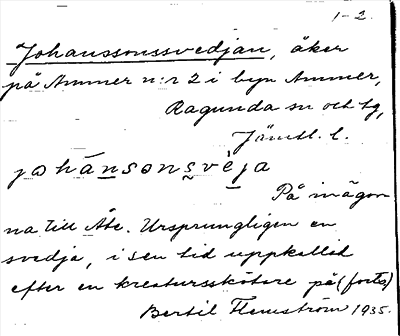 1-2.
Johanssonssvedjan, åker
på Ammer n:r 2 i byn Ammer,
Ragunda sn och tg,
Jämtl. l.
johánsonsvèja
På inägor
na till Åte. Ursprungligen en
svedja, i sen tid uppkallad
efter en kreatursskötare på (forts)
Bertil Flemström 1935.